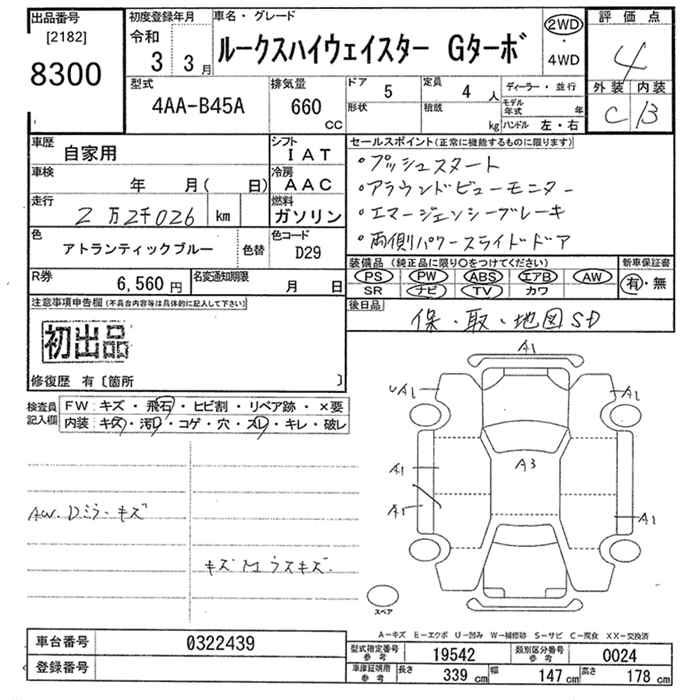 出品番号
[2182]
8300
初度登録年月
令和
3 3月
車名・グレード
ルークスハイウェイスター Gターボ
2WD
・
4WD
評価点
4
外装 内装
C B
型式
4AA-B45A
排気量
660
CC
ドア 5
形状
定員 4 人
積載 kg
ディーラー・並行
モデル年式 年
ハンドル 左・右
車歴
自家用
シフト
IAT
車検
年 月( 日)
冷房
AAC
走行
2万2千026 km
燃料
ガソリン
色
アトランティックブルー
色替
色コード
D29
R券
6,560 円
名変通知期限
月 日
セールスポイント(正常に機能するものに限ります)
・プッシュスタート
・アラウンドビューモニター
・エマージェンシーブレーキ
・両側パワースライドドア
装備品(純正品に限り○をつけてください)
PS PW ABS エアB AW
SR ナビ TV カワ
新車保証書
有・無
後日品
保・取・地図SD
注意事項申告欄(不具合内容等は具体的に記入して下さい)
初出品
修復歴 有〔箇所 〕
検査員
記入欄
FW:キズ・飛石・ヒビ割・リペア跡・×要
内装:キズ・汚れ・コゲ・穴・スレ・キレ・破レ
AW.Dミラーキズ
キズMウスキズ.
A1
UA1
A1
A1
A3
A1
A1
スペア
A-キズ E-エクボ U-凹み W-補修跡 S-サビ C-腐食 XX-交換済
車台番号
0322439
登録番号
型式指定番号
参考
19542
類別区分番号
参考
0024
車庫証明用
参考
長さ 339 cm
幅 147 cm
高さ 178 cm